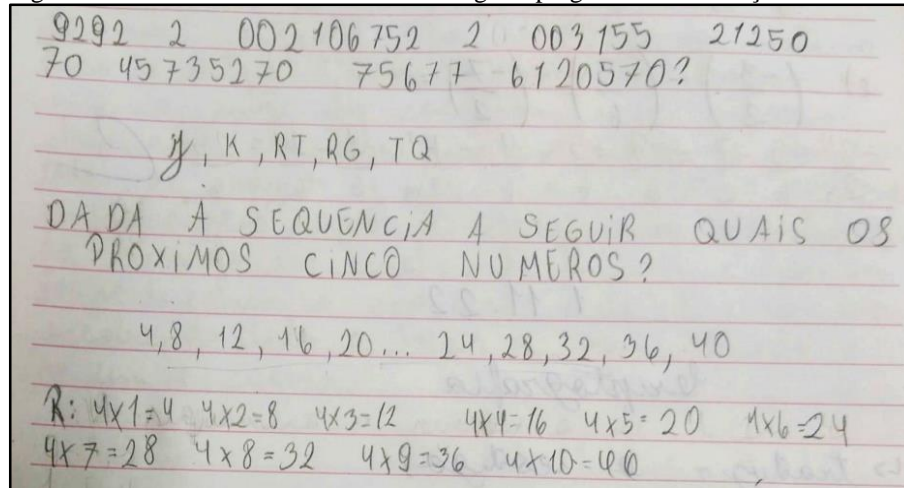 9292 2 002106752 2 003155 21250
70 45735270 75677 6120570?
y, K, RT, RG, TQ
DADA A SEQUENCIA A SEGUIR QUAIS OS
PROXIMOS CINCO NUMEROS?
4, 8, 12, 16, 20... 24, 28, 32, 36, 40
R: 4x1=4 4x2=8 4x3=12 4x4=16 4x5=20 4x6=24
4x7=28 4x8=32 4x9=36 4x10=40